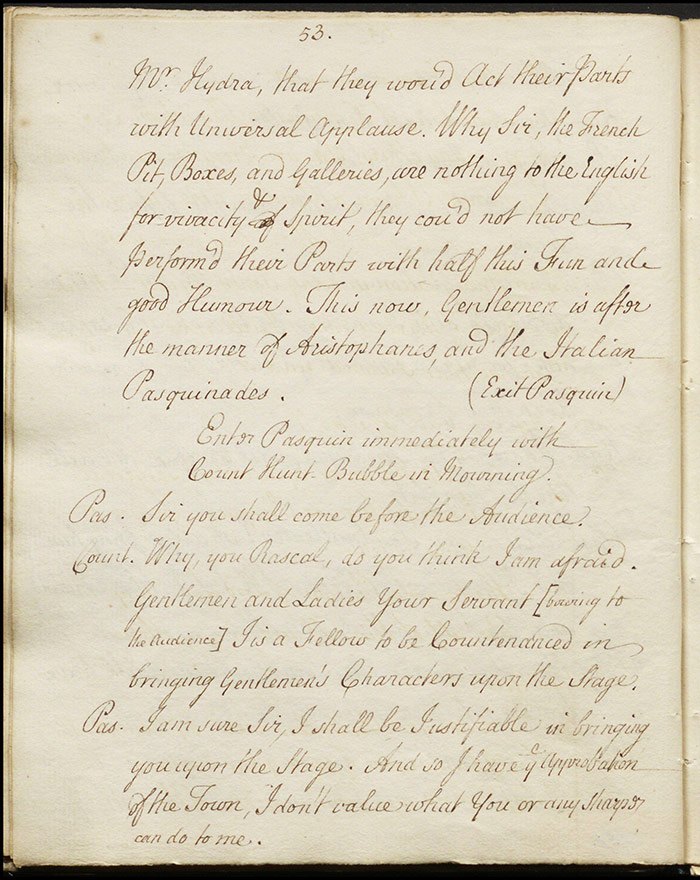 53.
Mr. Hydra, that they wou'd Act their Parts
with Universal Applause. Why Sir, the French
Pit, Boxes, and Galleries, are nothing to the English
for vivacity & Spirit, they cou'd not have
perform'd their Parts with half this Fun and
good Humour. This now, Gentlemen is after
the manner of Aristophanes, and the Italian
Pasquinades. (Exit Pasquin)
Enter Pasquin immediately with
Count Hunt-Bubble in Mourning.
Pas. Sir you shall come before the Audience.
Count. Why, you Rascal, do you think I am afraid.
Gentlemen and Ladies Your Servant [bowing to
the Audience] Is a Fellow to be Countenanced in
bringing Gentlemen's Characters upon the Stage.
Pas. I am sure Sir, I shall be Justifiable in bringing
you upon the Stage. And so I have ye Approbation
of the Town, I don't value what You or any Sharper
can do to me.